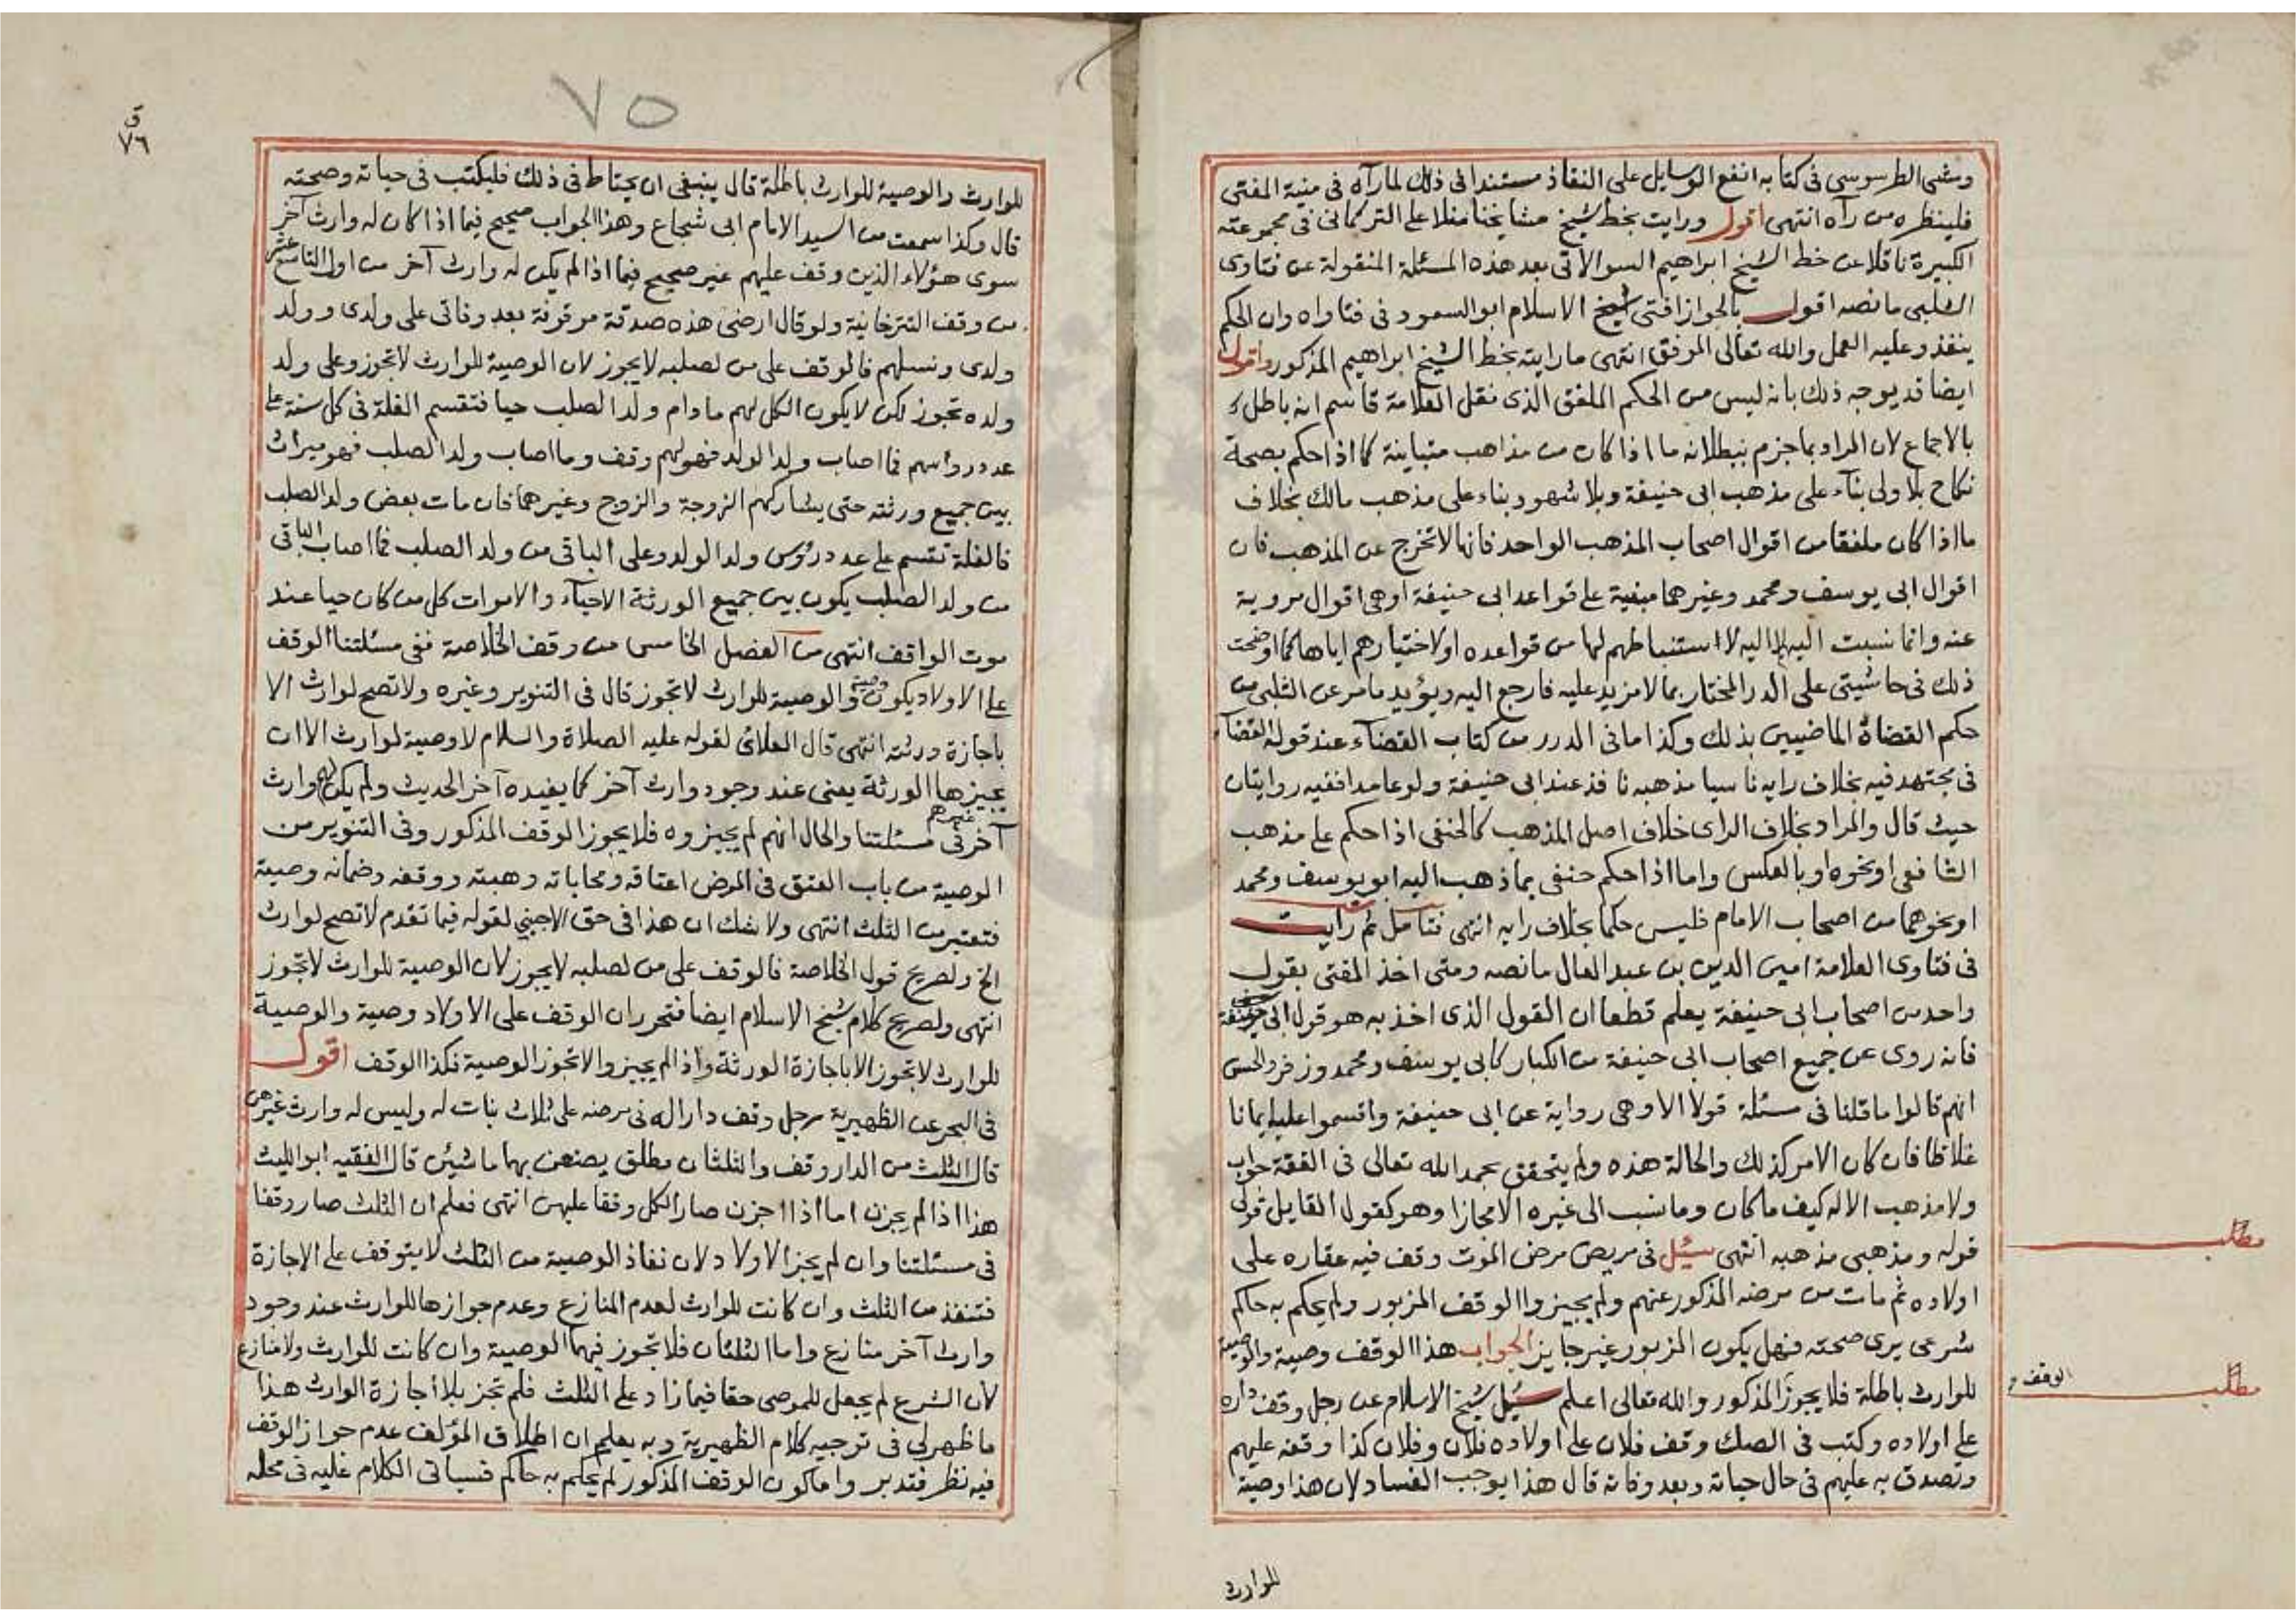 ومشى الطرسوسي فى كتابه انفع الوسايل على النفاذ مستندا فى ذلك لما رآه فى منية المفتى
فلينظره من رآه انتهى اقول ورايت بخط شيخ مشايخنا منلا على التركمانى فى مجموعته
الكبيرة ناقلا عن خط الشيخ ابراهيم السوالاتى بعد هذه المسئلة المنقولة عن فتاوى
الشلبى ما نصه اقول بالجواز افتى شيخ الاسلام ابو السعود فى فتاواه وان الحكم
ينفذ وعليه العمل والله تعالى الموفق انتهى ما رايته بخط الشيخ ابراهيم المذكور واقول
ايضا قد يوجه ذلك بانه ليس من الحكم الملفق الذى نقل العلامة قاسم انه باطل
بالاجماع لان المراد بما جزم ببطلانه ما اذا كان من مذاهب متباينة كما اذا حكم بصحة
نكاح بلا ولى بناء على مذهب ابى حنيفة وبلا شهود بناء على مذهب مالك بخلاف
ما اذا كان ملفقا من اقوال اصحاب المذهب الواحد فانها لا تخرج عن المذهب فان
اقوال ابى يوسف ومحمد وغيرهما مبنية على قواعد ابى حنيفة او هى اقوال مروية
عنه وانما نسبت اليهم لا اليه لاستنباطهم لها من قواعده او لاختيارهم اياها كما اوضحت
ذلك فى حاشيتى على الدر المختار بما لا مزيد عليه فارجع اليه ويؤيد ما مر عن الشلبى من
حكم القضاة الماضيين بذلك وكذا ما فى الدرر من كتاب القضاء عند قوله القضاء
فى مجتهد فيه بخلاف رايه ناسيا مذهبه نافذ عند ابى حنيفة ولو عامدا ففيه روايتان
حيث قال والمراد بخلاف الراى خلاف اصل المذهب كالحنفى اذا حكم على مذهب
الشافعى او نحوه او بالعكس واما اذا حكم حنفى بما ذهب اليه ابو يوسف ومحمد
او نحوهما من اصحاب الامام فليس حكما بخلاف رايه انتهى فتامل ثم رايت
فى فتاوى العلامة امين الدين بن عبد العال ما نصه ومتى اخذ المفتى بقول
واحد من اصحاب ابى حنيفة يعلم قطعا ان القول الذى اخذ به هو قول ابى حنيفة
فانه روى عن جميع اصحاب ابى حنيفة من الكبار كابى يوسف ومحمد وزفر والحسن
انهم قالوا ما قلنا فى مسئلة قولا الا وهى رواية عن ابى حنيفة واقسموا عليه ايمانا
غلاظا فان كان الامر كذلك والحالة هذه ولم يتحقق بحمد الله تعالى فى الفقه جواب
ولا مذهب الا له كيف ما كان وما نسب الى غيره الا مجازا وهو كقول القايل قولى
قوله ومذهبى مذهبه انتهى سئل فى مريض مرض الموت وقف فيه عقاره على
اولاده ثم مات من مرضه المذكور عنهم ولم يجيزوا الوقف المزبور ولم يحكم به حاكم
شرعى يرى صحته فهل يكون المزبور غير جايز الجواب هذا الوقف وصية والوصية
للوارث باطلة فلا يجوز المذكور والله تعالى اعلم سئل شيخ الاسلام عن رجل وقف داره
على اولاده وكتب فى الصك وقف فلان على اولاده فلان وفلان كذا وقفه عليهم
وتصدق به عليهم فى حال حياته وبعد وفاته قال هذا يوجب الفساد لان هذا وصية
للوارث
مطلب
مطلب
الوقف
٧٥
ق
٧٦
للوارث والوصية للوارث باطلة قال ينبغى ان يحتاط فى ذلك فليكتب فى حياته وصحته
قال وكذا سمعت من السيد الامام ابى شجاع وهذا الجواب صحيح فيما اذا كان له وارث آخر
سوى هؤلاء الذين وقف عليهم غير صحيح فيما اذا لم يكن له وارث آخر من اول التاسع عشر
من وقف التترخانية ولو قال ارضى هذه صدقة موقوفة بعد وفاتى على ولدى وولد
ولدى ونسلهم فالوقف على من لصلبه لا يجوز لان الوصية للوارث لا تجوز وعلى ولد
ولده تجوز لكن لا يكون الكل لهم مادام ولد الصلب حيا فتقسم الغلة فى كل سنة على
عدد رؤسهم فما اصاب ولد الولد فهو لهم وقف وما اصاب ولد الصلب فهو ميراث
بين جميع ورثته حتى يشاركهم الزوجة والزوج وغيرهما فان مات بعض ولد الصلب
فالغلة تقسم على عدد رؤس ولد الولد وعلى الباقى من ولد الصلب فما اصاب الباقى
من ولد الصلب يكون بين جميع الورثة الاحياء والاموات كل من كان حيا عند
موت الواقف انتهى من الفصل الخامس من وقف الخلاصة ففى مسئلتنا الوقف
على الاولاد يكون وصية والوصية للوارث لا تجوز قال فى التنوير وغيره ولا تصح لوارث الا
باجازة ورثته انتهى قال العلائى لقوله عليه الصلاة والسلام لا وصية لوارث الا ان
يجيزها الورثة يعنى عند وجود وارث آخر كما يفيده آخر الحديث ولم يكن له وارث
آخر غيرهم فى مسئلتنا والحال انهم لم يجيزوه فلا يجوز الوقف المذكور وفى التنوير من
الوصية من باب العتق فى المرض اعتاقه ومحاباته وهبته ووقفه وضمانه وصية
فتعتبر من الثلث انتهى ولا شك ان هذا فى حق الاجنبى لقوله فيما تقدم لا تصح لوارث
الخ ولصريح قول الخلاصة فالوقف على من لصلبه لا يجوز لان الوصية للوارث لا تجوز
انتهى ولصريح كلام شيخ الاسلام ايضا فتحرر ان الوقف على الاولاد وصية والوصية
للوارث لا تجوز الا باجازة الورثة واذا لم يجيزوا لا تجوز الوصية فكذا الوقف اقول
فى البحر عن الظهيرية رجل وقف دارا له فى مرضه على ثلاث بنات له وليس له وارث غيرهن
قال الثلث من الدار وقف والثلثان مطلق يصنعن بها ما شئن قال الفقيه ابو الليث
هذا اذا لم يجزن اما اذا اجزن صار الكل وقفا عليهن انتهى فعلم ان الثلث صار وقفا
فى مسئلتنا وان لم يجز الاولاد لان نفاذ الوصية من الثلث لا يتوقف على الاجازة
فتنفذ من الثلث وان كانت للوارث لعدم المنازع وعدم جوازها للوارث عند وجود
وارث آخر منازع واما الثلثان فلا تجوز فيهما الوصية وان كانت للوارث ولا منازع
لان الشرع لم يجعل للموصى حقا فيما زاد على الثلث فلم تجز بلا اجازة الوارث هذا
ما ظهر لى فى توجيه كلام الظهيرية وبه يعلم ان اطلاق المؤلف عدم جواز الوقف
فيه نظر فتدبر واما كون الوقف المذكور لم يحكم به حاكم فسياتى الكلام عليه فى محله